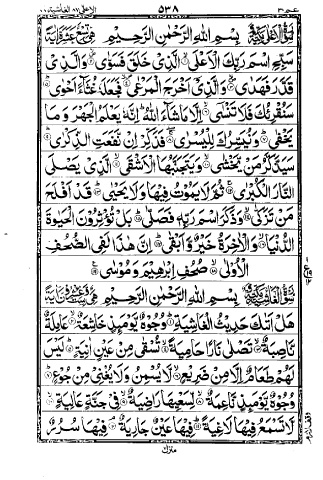 الاعلى ٨٧ الغاشية ٨٨ ٥٣٨ عم ٣٠
سورة الاعلى مكية بسم الله الرحمن الرحيم هي تسع عشرة اية
سبح اسم ربك الاعلى ۝ الذي خلق فسوى ۝ والذي
قدر فهدى ۝ والذي اخرج المرعى ۝ فجعله غثاء احوى ۝
سنقرئك فلا تنسى ۝ الا ما شاء الله انه يعلم الجهر وما
يخفى ۝ ونيسرك لليسرى ۝ فذكر ان نفعت الذكرى ۝
سيذكر من يخشى ۝ ويتجنبها الاشقى ۝ الذي يصلى
النار الكبرى ۝ ثم لا يموت فيها ولا يحيى ۝ قد افلح
من تزكى ۝ وذكر اسم ربه فصلى ۝ بل تؤثرون الحيوة
الدنيا ۝ والاخرة خير وابقى ۝ ان هذا لفي الصحف
الاولى ۝ صحف ابرهيم وموسى ۝
سورة الغاشية مكية بسم الله الرحمن الرحيم هي ست وعشرون اية
هل اتىك حديث الغاشية ۝ وجوه يومئذ خاشعة ۝ عاملة
ناصبة ۝ تصلى نارا حامية ۝ تسقى من عين انية ۝ ليس
لهم طعام الا من ضريع ۝ لا يسمن ولا يغني من جوع ۝
وجوه يومئذ ناعمة ۝ لسعيها راضية ۝ في جنة عالية ۝
لا تسمع فيها لاغية ۝ فيها عين جارية ۝ فيها سرر
منزل